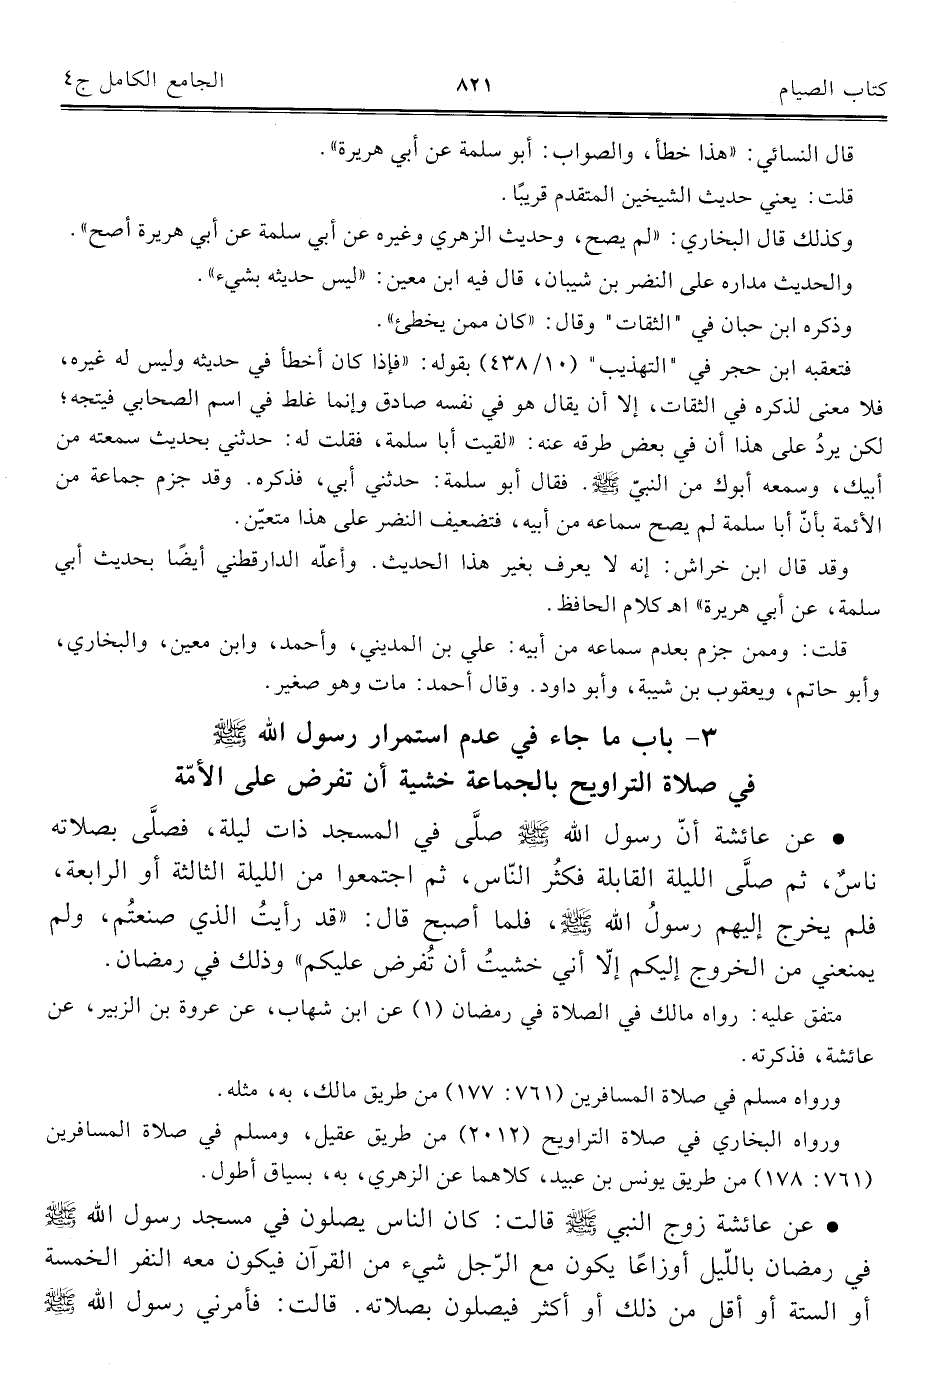 كتاب الصيام ٨٢١ الجامع الكامل ج٤
قال النسائي: «هذا خطأ، والصواب: أبو سلمة عن أبي هريرة».
قلت: يعني حديث الشيخين المتقدم قريبًا.
وكذلك قال البخاري: «لم يصح، وحديث الزهري وغيره عن أبي سلمة عن أبي هريرة أصح».
والحديث مداره على النضر بن شيبان، قال فيه ابن معين: «ليس حديثه بشيء».
وذكره ابن حبان في "الثقات" وقال: «كان ممن يخطئ».
فتعقبه ابن حجر في "التهذيب" (١٠/ ٤٣٨) بقوله: «فإذا كان أخطأ في حديثه وليس له غيره،
فلا معنى لذكره في الثقات، إلا أن يقال هو في نفسه صادق وإنما غلط في اسم الصحابي فيتجه؛
لكن يردُ على هذا أن في بعض طرقه عنه: «لقيت أبا سلمة، فقلت له: حدثني بحديث سمعته من
أبيك، وسمعه أبوك من النبيّ ﷺ. فقال أبو سلمة: حدثني أبي، فذكره. وقد جزم جماعة من
الأئمة بأنّ أبا سلمة لم يصح سماعه من أبيه، فتضعيف النضر على هذا متعيّن.
وقد قال ابن خراش: إنه لا يعرف بغير هذا الحديث. وأعلّه الدارقطني أيضًا بحديث أبي
سلمة، عن أبي هريرة» اهـ كلام الحافظ.
قلت: وممن جزم بعدم سماعه من أبيه: علي بن المديني، وأحمد، وابن معين، والبخاري،
وأبو حاتم، ويعقوب بن شيبة، وأبو داود. وقال أحمد: مات وهو صغير.
٣- باب ما جاء في عدم استمرار رسول الله ﷺ
في صلاة التراويح بالجماعة خشية أن تفرض على الأمّة
• عن عائشة أنّ رسول الله ﷺ صلَّى في المسجد ذات ليلة، فصلَّى بصلاته
ناسٌ، ثم صلَّى الليلة القابلة فكثُر النّاس، ثم اجتمعوا من الليلة الثالثة أو الرابعة،
فلم يخرج إليهم رسولُ الله ﷺ، فلما أصبح قال: «قد رأيتُ الذي صنعتُم، ولم
يمنعني من الخروج إليكم إلّا أني خشيتُ أن تُفرض عليكم» وذلك في رمضان.
متفق عليه: رواه مالك في الصلاة في رمضان (١) عن ابن شهاب، عن عروة بن الزبير، عن
عائشة، فذكرته.
ورواه مسلم في صلاة المسافرين (٧٦١: ١٧٧) من طريق مالك، به، مثله.
ورواه البخاري في صلاة التراويح (٢٠١٢) من طريق عقيل، ومسلم في صلاة المسافرين
(٧٦١: ١٧٨) من طريق يونس بن عبيد، كلاهما عن الزهري، به، بسياق أطول.
• عن عائشة زوج النبي ﷺ قالت: كان الناس يصلون في مسجد رسول الله ﷺ
في رمضان باللّيل أوزاعًا يكون مع الرّجل شيء من القرآن فيكون معه النفر الخمسة
أو الستة أو أقل من ذلك أو أكثر فيصلون بصلاته. قالت: فأمرني رسول الله ﷺ